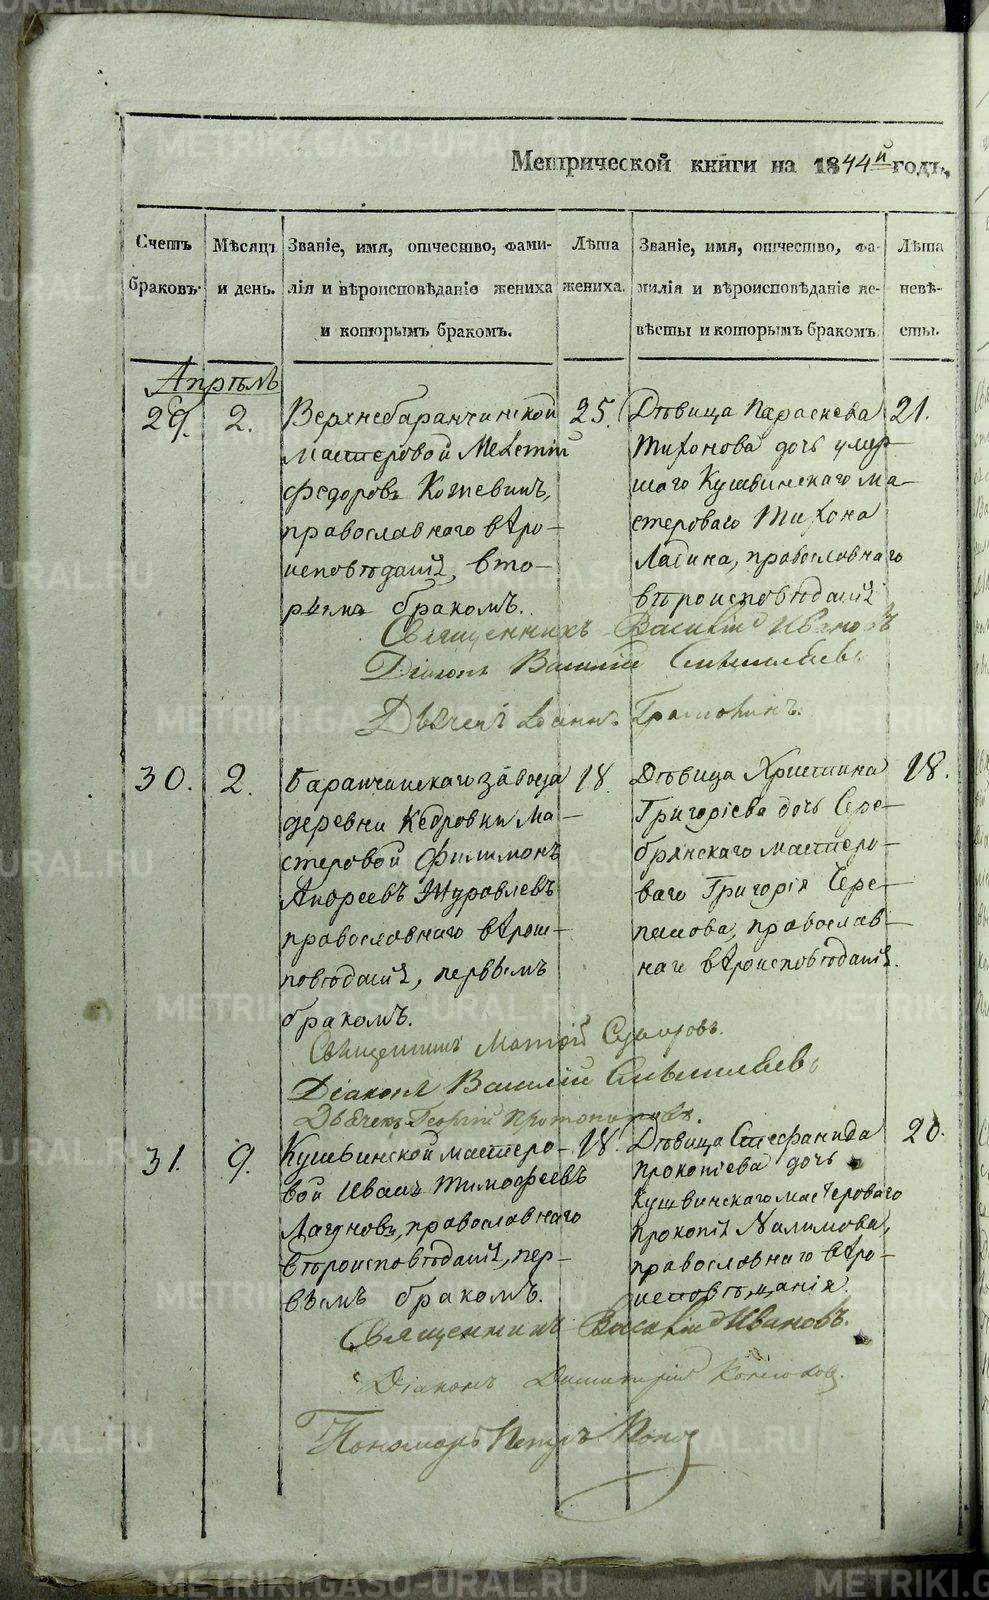 Метрической книги на 1844й годъ,
Счетъ браковъ.
Мѣсяцъ и день.
Званіе, имя, отчество, фами-
лія и вѣроисповѣданіе жениха
и которымъ бракомъ.
Лѣта жениха.
Званіе, имя, отчество, фа-
милія и вѣроисповѣданіе не-
вѣсты и которымъ бракомъ.
Лѣта невѣ-
сты.
Апрѣль
29. 2.
Верхнебаранчинской
мастеровой Мелетій
Федоровъ Кожевинъ,
православнаго вѣро-
исповѣданія, вто-
рымъ бракомъ.
25.
Дѣвица Параскева
Тихонова дочь умер-
шаго Кушвинскаго ма-
стероваго Тихона
православнаго
вѣроисповѣданія
21.
Священникъ Василій Ивановъ
Діаконъ Василій
Дьячекъ Іоаннъ
30. 2.
Баранчинскаго завода
деревни Кедровки ма-
стеровой Филимонъ
Андреевъ Журавлевъ
православнаго вѣроис-
повѣданія, первымъ
бракомъ.
18.
Дѣвица Христина
Григоріева дочь Сере-
брянскаго мастеро-
ваго Григорія Чере-
панова, православ-
наго вѣроисповѣданія.
18.
Священникъ Матѳій Сидоровъ.
Діаконъ Василій
Дьячекъ Георгій Протопоповъ.
31. 9.
Кушвинской мастеро-
вой Иванъ Тимофеевъ
Лагуновъ, православнаго
вѣроисповѣданія, пер-
вымъ бракомъ.
18.
Дѣвица Стефанида
Прокопіева дочь
Кушвинскаго мастероваго
Прокопія Налимова,
православнаго вѣро-
исповѣданія.
20.
Священникъ Василій Ивановъ.
Діаконъ Димитрій
Пономарь Петръ Попов
METRIKI.GASO-URAL.RU